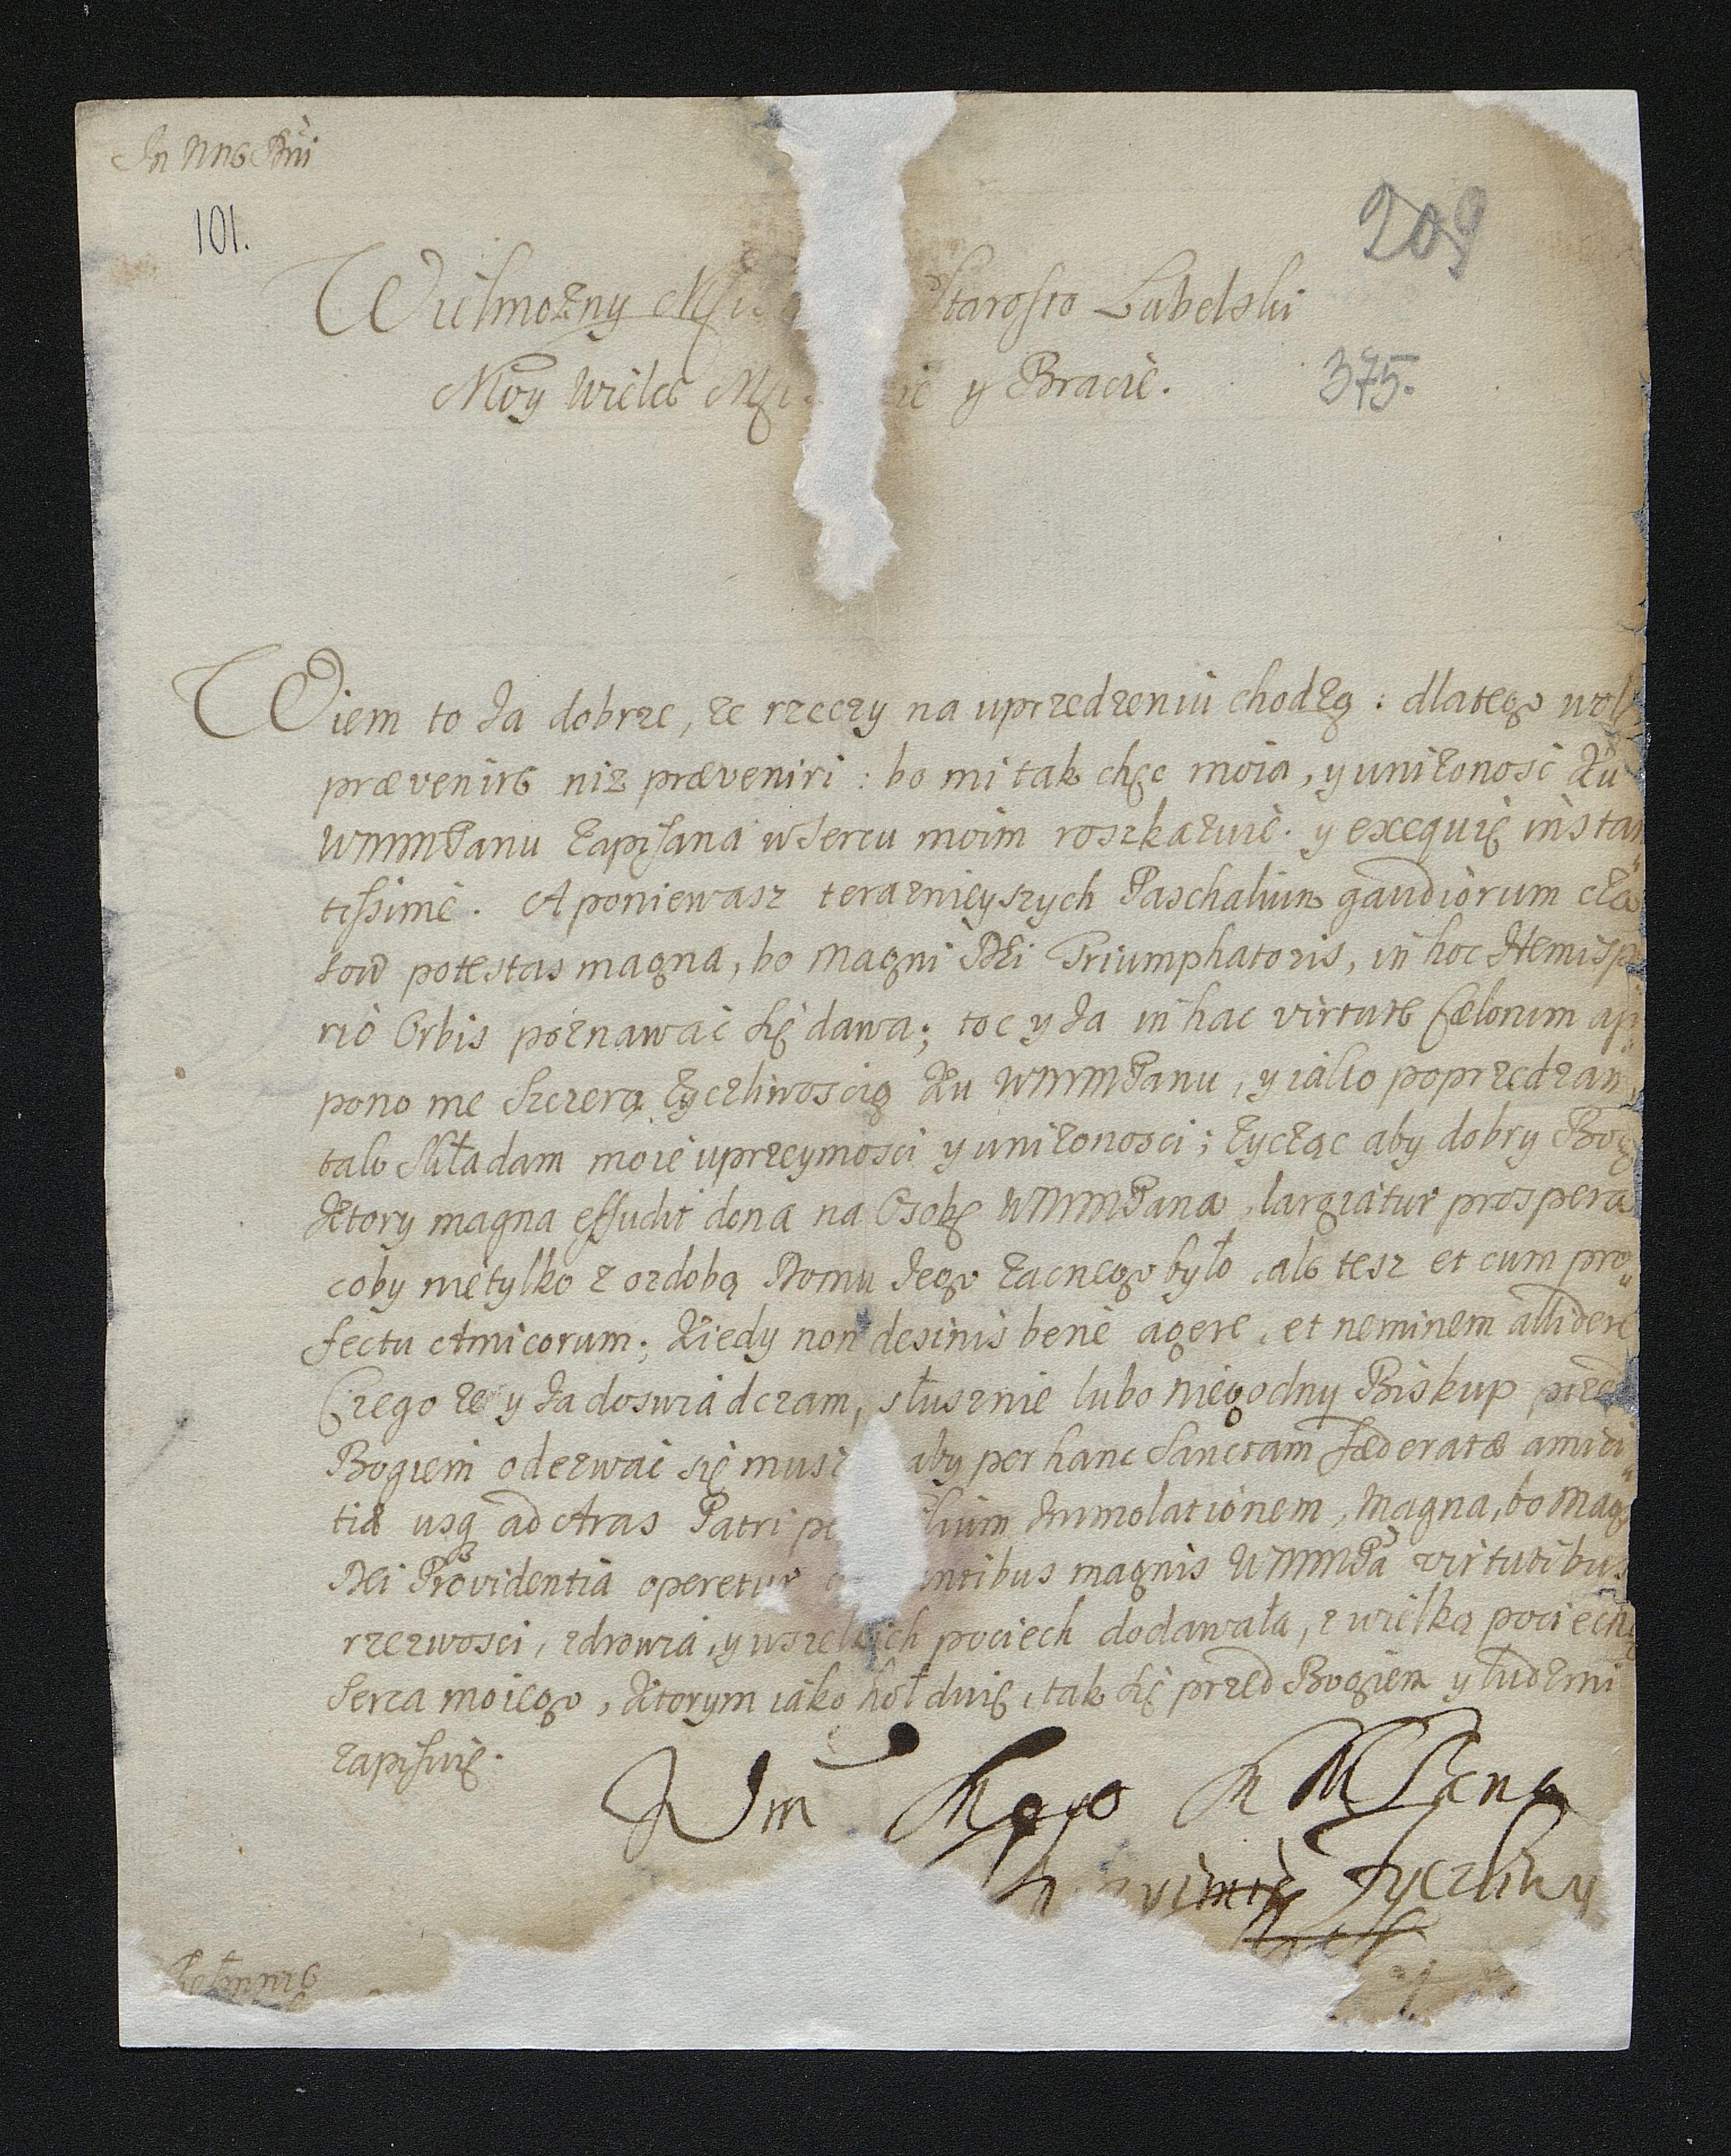 In Nne Dni
101.
209
Wielmozny Mści Starosto Lubelski
375.
Moy Wielce Mści y Bracie.
Wiem to Ja dobrze, ze rzeczy na uprzedzeniu chodzą : dlatego wol
prævenire niz præveniri : bo mi tak chęc moia, y unizonosć Ku
WMMMPanu zapisana w Sercu moim roszkazuie. y exequię instan
tissimè. A poniewasz teraznieyszych Paschalium gaudiorum cza
sow potestas magna, bo Magni Dei Triumphatoris, in hoc Hemisp
rio Orbis poznawać się dawa; toc y Ja in hac virtute Cælorum ap
pono me szczerą zyczliwoscią Ku WMMMPanu, y iako poprzedzam
tak składam moie uprzeymosci y unizonosci; zycząc aby dobry Bog
Ktory magna effudit dona na Osobę WMMMPana, largiatur prospera
coby nietylko z ozdobą Domu Jego zacnego było, ale tesz et cum pro„
fectu Amicorum; Kiedy non desinis bene agere, et neminem allidere
Czego ze y Ja doswiadczam, słusznie lubo niegodny Biskup przed
Bogiem odezwać się musz aby per hanc Sanctam fœderatæ amici„
tiæ usq ad Aras Patri pe lium Immolationem, Magna, bo Mag
Dei Providentia operetur ntibus magnis WMMMPa virtutibus
rzezwosci, zdrowia, y wszelkich pociech dodawała, z wielką pociechą
Serca moiego, Ktorym iako hołduię, tak się przed Bogiem y ludzmi
zapisuię.
Wm Mego M M Pana
zyczliwy